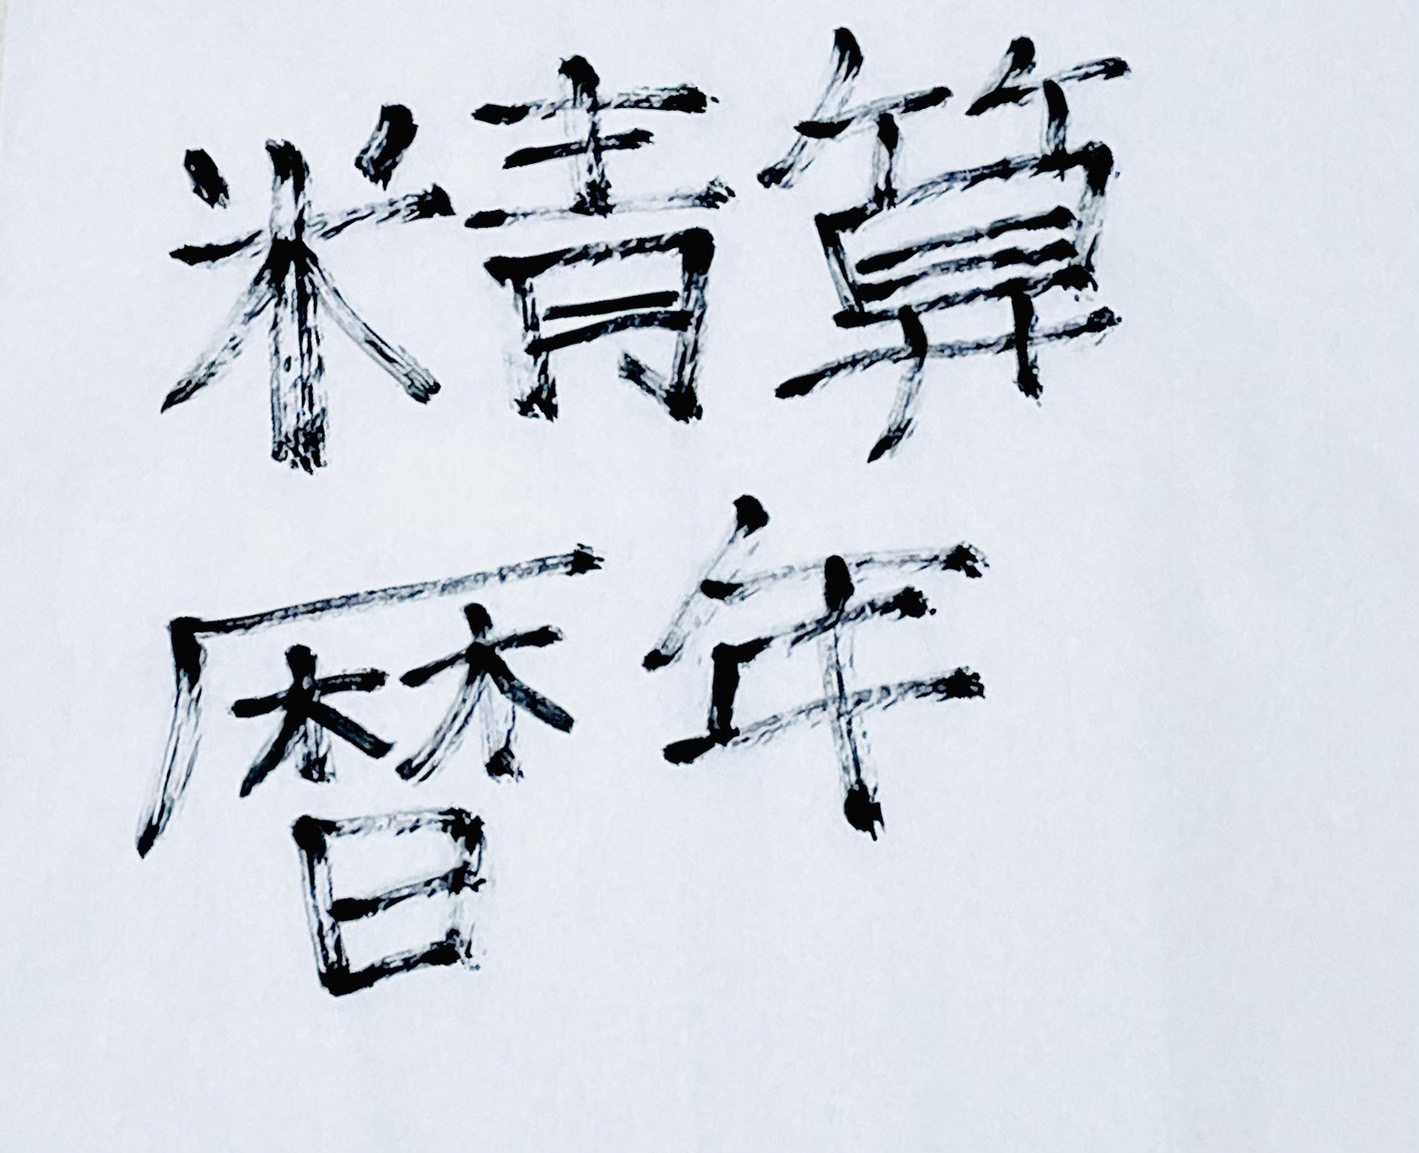 精算
暦年